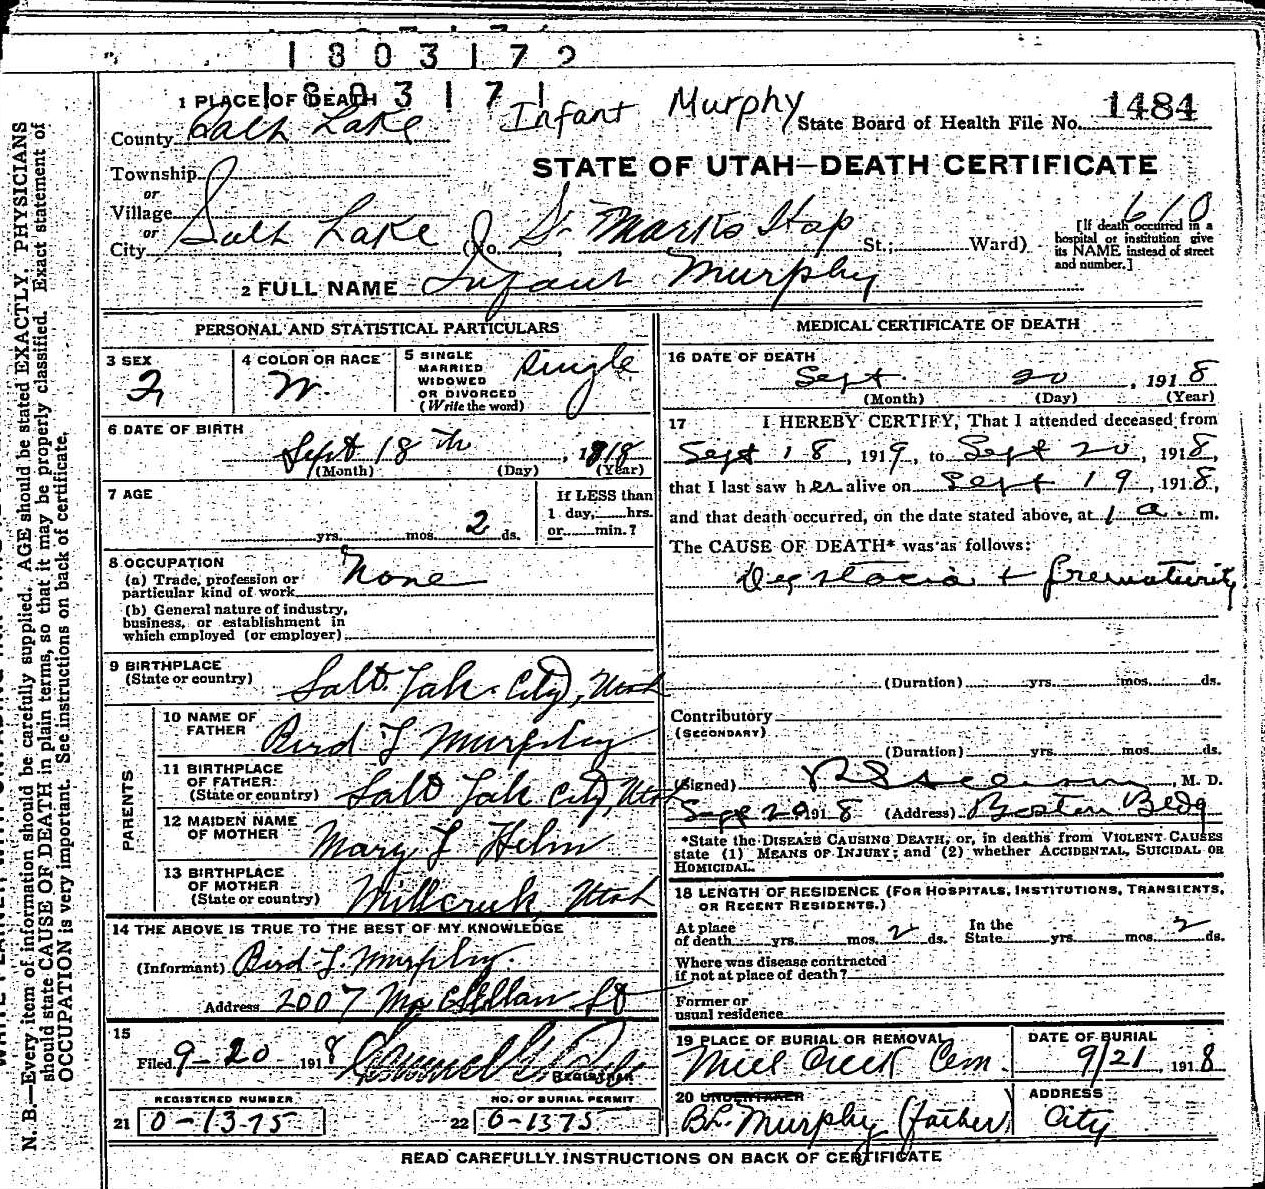 1803172
1803171
1 PLACE OF DEATH
Infant Murphy
County Salt Lake
State Board of Health File No. 1484
STATE OF UTAH—DEATH CERTIFICATE
Township
or
Village
or
City Salt Lake (No. St Marks Hosp St.; Ward)
610
[If death occurred in a hospital or institution give its NAME instead of street and number.]
2 FULL NAME Infant Murphy
PERSONAL AND STATISTICAL PARTICULARS
3 SEX F
4 COLOR OR RACE W.
5 SINGLE MARRIED WIDOWED OR DIVORCED (Write the word) Single
6 DATE OF BIRTH
Sept 18th, 1918
(Month) (Day) (Year)
7 AGE
yrs. mos. 2 ds.
If LESS than
1 day, hrs.
or min.?
8 OCCUPATION
(a) Trade, profession or
particular kind of work None
(b) General nature of industry,
business, or establishment in
which employed (or employer)
9 BIRTHPLACE
(State or country) Salt Lake City, Utah
PARENTS
10 NAME OF
FATHER Bird L Murphy
11 BIRTHPLACE
OF FATHER
(State or country) Salt Lake City, Utah
12 MAIDEN NAME
OF MOTHER Mary L Helm
13 BIRTHPLACE
OF MOTHER
(State or country) Millcreek, Utah
14 THE ABOVE IS TRUE TO THE BEST OF MY KNOWLEDGE
(Informant) Bird L. Murphy.
Address 2007 McClellan St
15
Filed 9-20 1918
REGISTRAR
REGISTERED NUMBER
21 0-1375
NO. OF BURIAL PERMIT
22 0-1375
MEDICAL CERTIFICATE OF DEATH
16 DATE OF DEATH
Sept. 20, 1918
(Month) (Day) (Year)
17 I HEREBY CERTIFY, That I attended deceased from
Sept 18, 1919, to Sept 20, 1918,
that I last saw her alive on Sept 19, 1918,
and that death occurred, on the date stated above, at 1 a. m.
The CAUSE OF DEATH* was as follows:
Dystocia + Prematurity.
(Duration) yrs. mos. ds.
Contributory
(SECONDARY)
(Duration) yrs. mos. ds.
(Signed) , M. D.
Sept 20 1918 (Address) Boston Bldg
*State the DISEASE CAUSING DEATH, or, in deaths from VIOLENT CAUSES
state (1) MEANS OF INJURY; and (2) whether ACCIDENTAL, SUICIDAL OR
HOMICIDAL.
18 LENGTH OF RESIDENCE (FOR HOSPITALS, INSTITUTIONS, TRANSIENTS,
OR RECENT RESIDENTS.)
At place
of death yrs. mos. 2 ds. In the State yrs. mos. 2 ds.
Where was disease contracted
if not at place of death?
Former or
usual residence
19 PLACE OF BURIAL OR REMOVAL
Mill Creek Cem.
DATE OF BURIAL
9/21, 1918
20 UNDERTAKER
B.L. Murphy (father)
ADDRESS
City
READ CAREFULLY INSTRUCTIONS ON BACK OF CERTIFICATE
N. B.—Every item of information should be carefully supplied. AGE should be stated EXACTLY. PHYSICIANS
should state CAUSE OF DEATH in plain terms, so that it may be properly classified. Exact statement of
OCCUPATION is very important. See instructions on back of certificate.